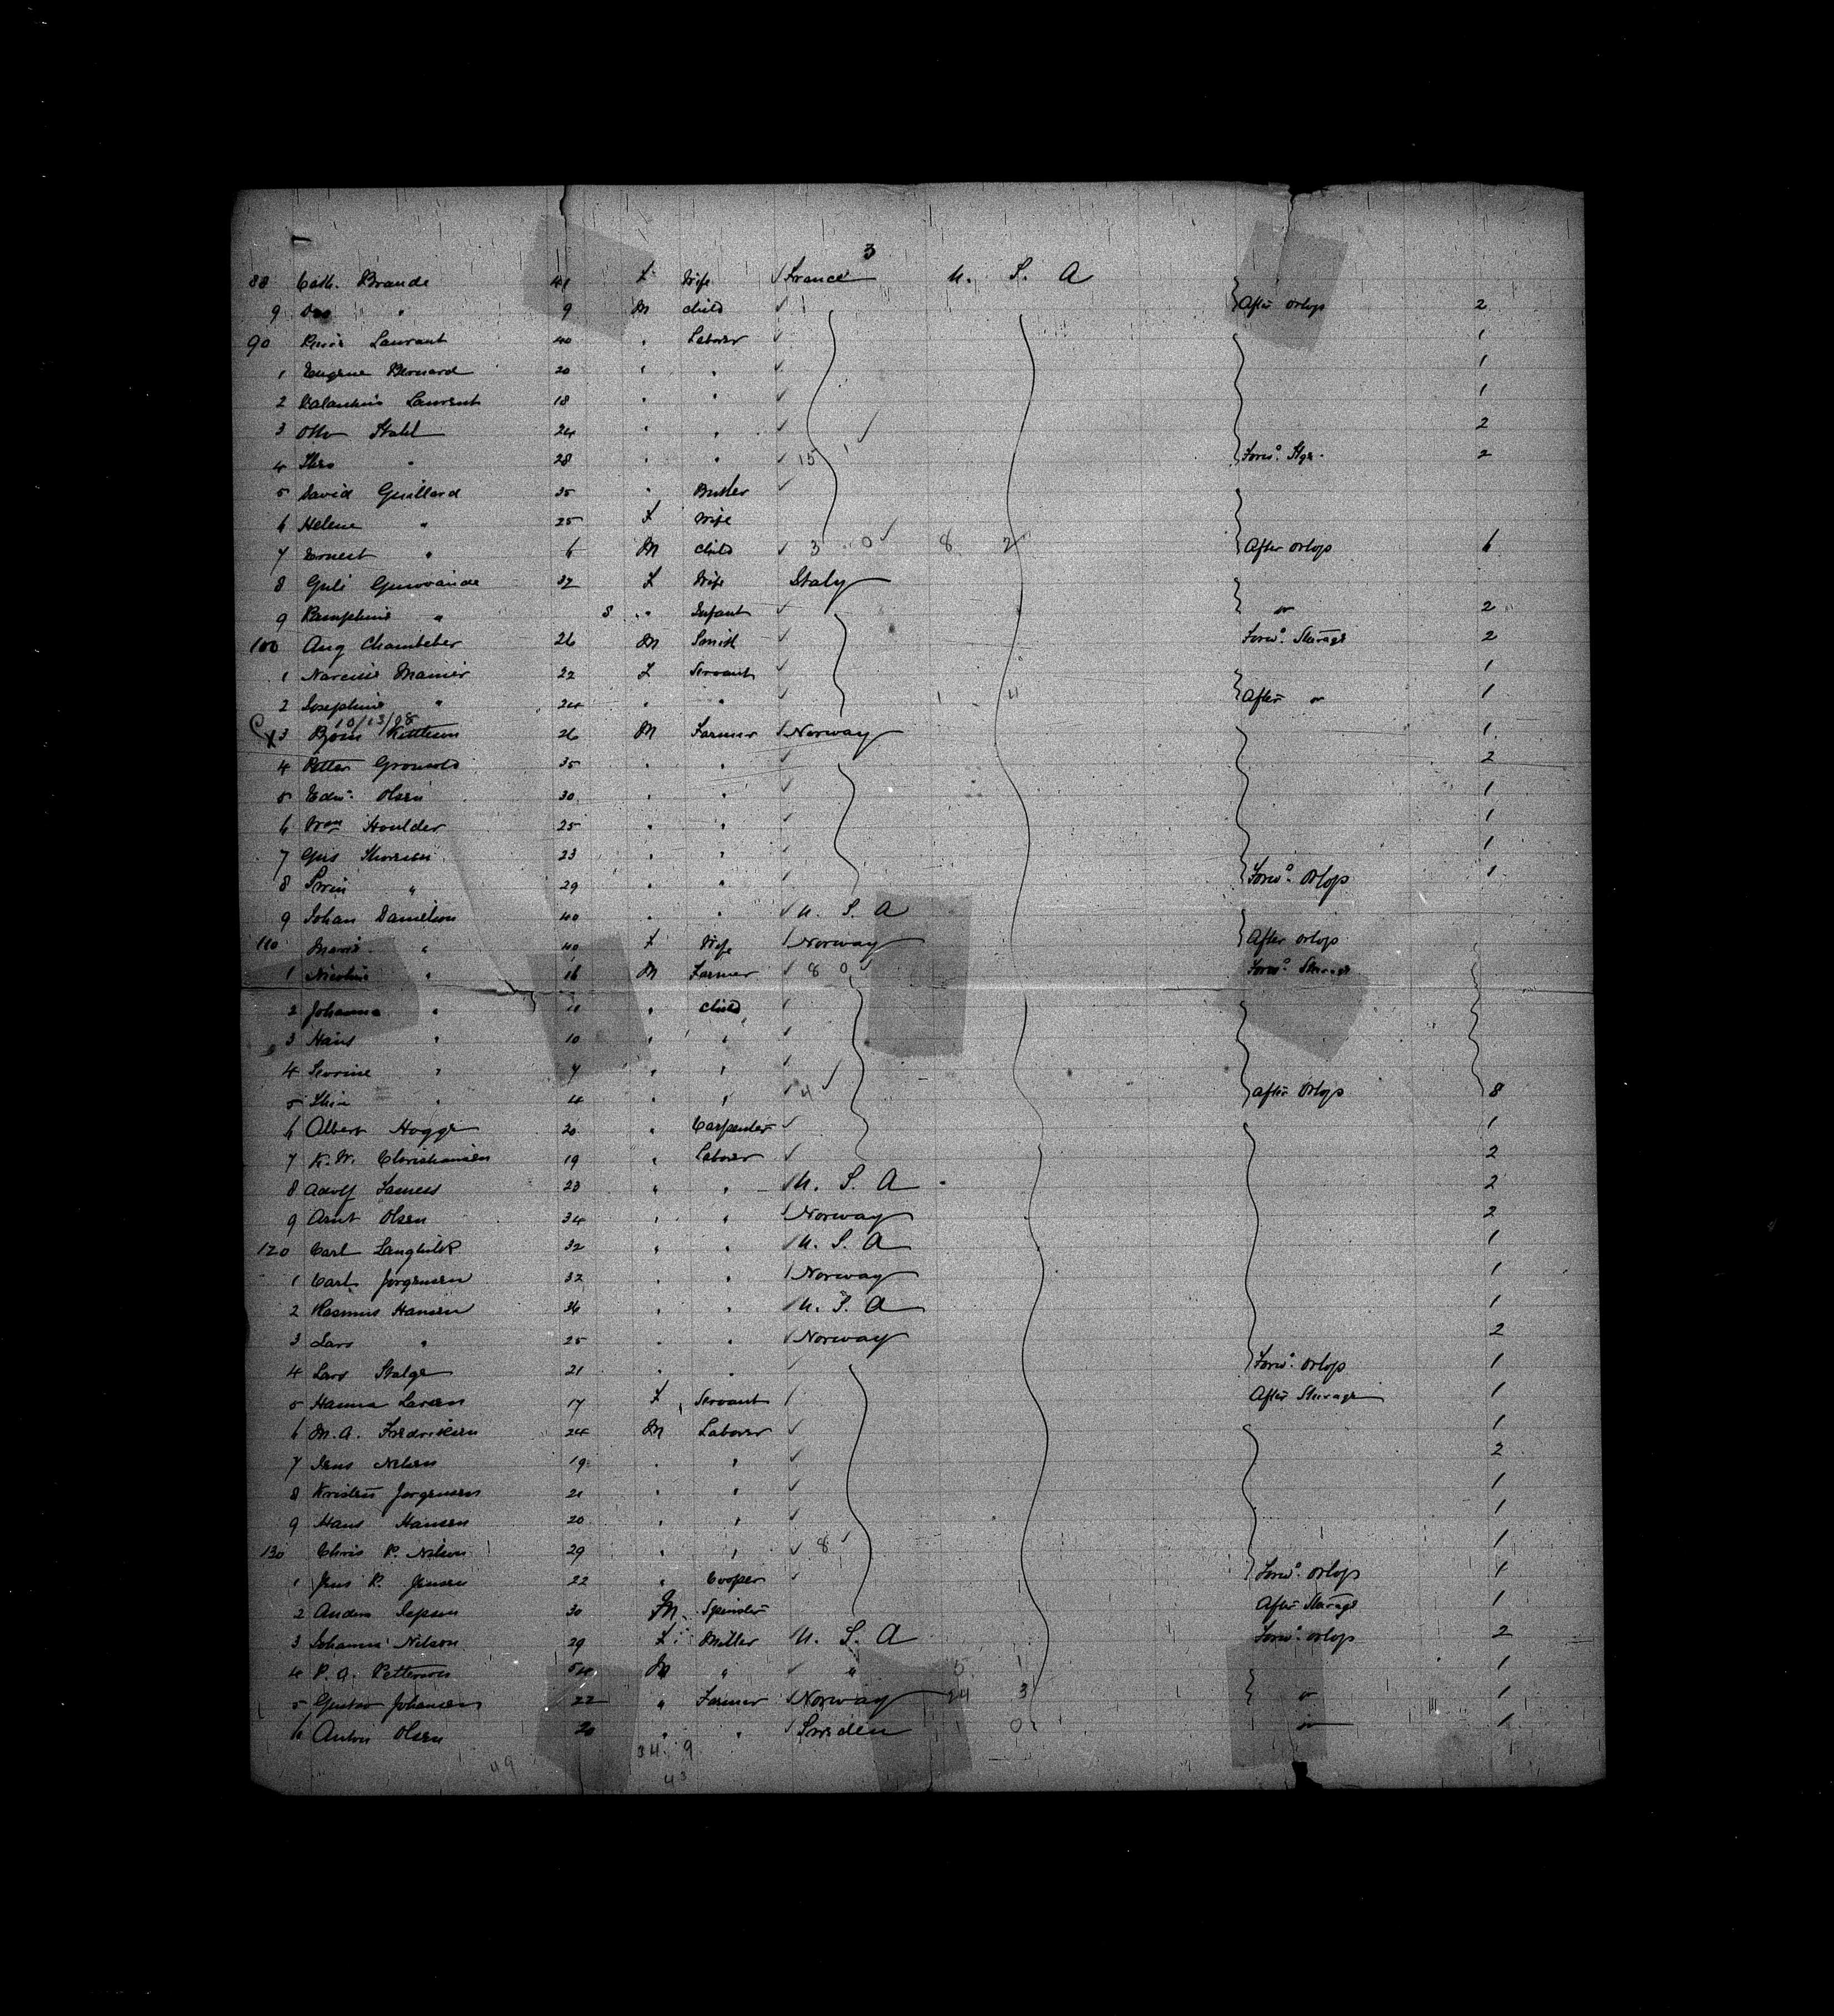 3
88 Cath. Brande 41 F Wife France U. S. A
9 " 9 M child After orlop 2
90 Laurant 40 " Laborer 1
1 Eugene Bernard 20 " " 1
2 Laurent 18 " " 1
3 Otto Stahl 24 " " 2
4 Theo " 28 " " 15 Forwd. Stge. 2
5 David Guillard 35 " Butler
6 Helene " 25 F Wife
7 Ernest " 6 M child 3 0 8 2 After orlop 6
8 32 F Wife Italy
9 " 8 " Infant do 2
100 Aug 26 M Smith Forwd. Steerage 2
1 Narcisse Manier 22 F Servant 1
2 Josephine " 24 " " 1 4 After do 1
10/13/08
3 Bjorn 26 M Farmer Norway 1
4 Petter 35 " " 2
5 Edw. Olsen 30 " " 1
6 Wm Houlder 25 " " 1
7 Gus 23 " " 1
8 " 29 " " Forwd. Orlop 1
9 Johan Danielson 40 " " U. S. A
110 Marie " 40 F Wife Norway After orlop
1 " 16 M Farmer 8 0 Forwd. Steerage
2 Johanna " 11 " child
3 Hans " 10 " "
4 Severine " 7 " "
5 " 4 " " 4 after Orlop 8
6 Albert Hogge 20 " Carpenter 1
7 K. W. Christiansen 19 " Laborer 2
8 Adolf 23 " " U. S. A 2
9 Arnt Olsen 34 " " Norway 2
120 Carl 32 " " U. S. A 1
1 Carl Jorgensen 32 " " Norway 1
2 Rasmus Hansen 26 " " U. S. A 1
3 Lars " 25 " " Norway 2
4 Lars 21 " " Forwd. orlop 1
5 Hanna Larsen 17 F Servant After Steerage 1
6 M. A. Fredriksen 24 M Laborer 1
7 Jens Nelsen 19 " " 2
8 Kristen Jorgensen 21 " " 1
9 Hans Hansen 20 " " 1
130 Chris P. Nilson 29 " " 8 1
1 Jens P. Jensen 22 " Cooper Forwd. orlop 1
2 Anders Jepsen 30 Spinster After Steerage 1
3 Johanna Nilson 29 F Miller U. S. A Forwd. orlop 2
4 P. A. Petterson 54 M " " 5 1 1
5 Gustav Johansen 22 " Farmer Norway 24 3 do 1
6 Anton Olsen 20 " " Sweden 0 do 1
34 9
49 43